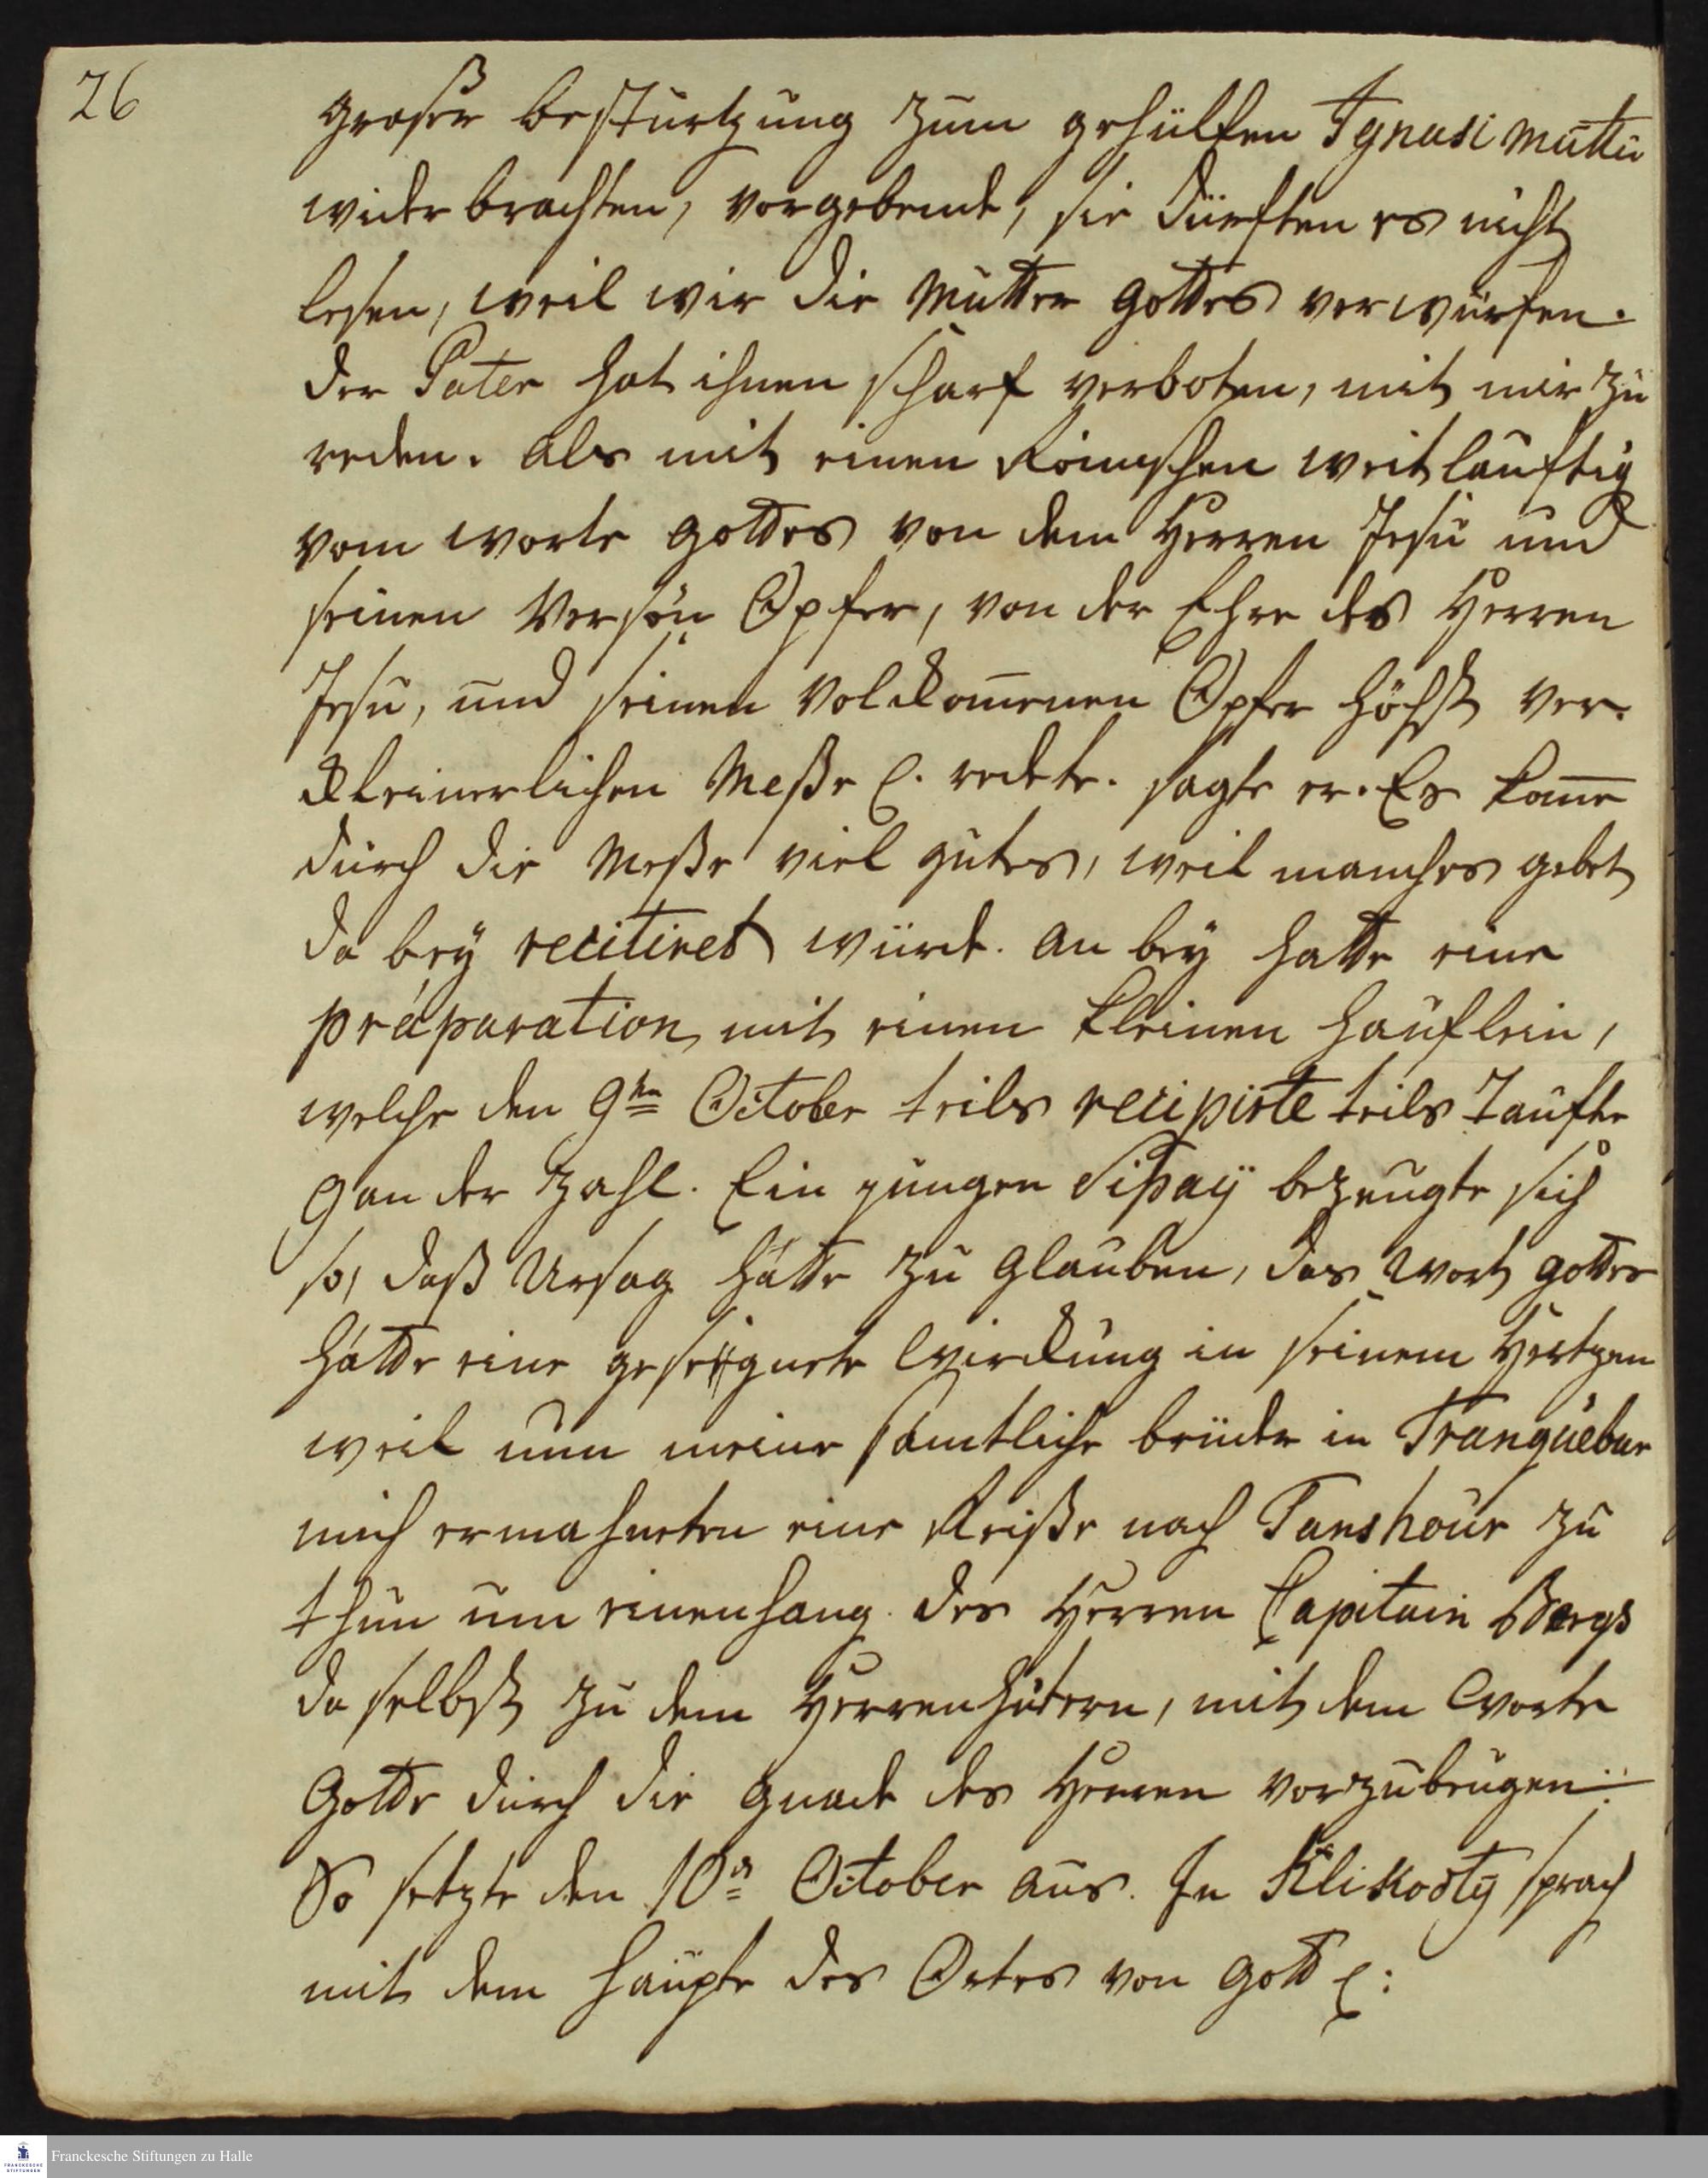 26
großer bestürtzung zum gehülfen Ignasi muttu
wider brachten, vorgebende, sie dürften es nicht
lesen, weil wir die Mutter Gottes verwürfen.
der Pater hat ihnen scharf verboten, mit mir zu
reden. als mit einen Römischen weitläuftig
vom worte Gottes von dem Herren Jesu und
seinen Versön Opfer, von der Ehre des Herren
Jesu, und seinen Volckom̅enen Opfer höchst ver-
kleinerlichen Meße e. redete. sagte er. Es kom̅e
durch die Meße viel gutes, weil manches gebet
da bey recitiret würde. an bey hatte eine
præparation mit einen kleinen häuflein,
welche den 9ten October teils recipirte teils taufte
9 an der Zahl. Ein junger Sipaÿ bezeugte sich
so, daß Ursag hätte zu glauben, das Wort Gottes
hätte eine geseegnete Wirckung in seinem Hertzen
weil nun meine sämtliche brüder in Tranquebar
mich ermahneten eine Reiße nach Tanshour zu
thun um einen hang des Herren Capitain Bergs
da selbst zu dem Herrenhütern, mit dem Worte
Gotte durch die Gnade des Herren vorzubeugen:
So setzte den 10n October aus. In Klikooty sprach
mit dem Haupte des Ortes von Gott e:
Franckesche Stiftungen zu Halle